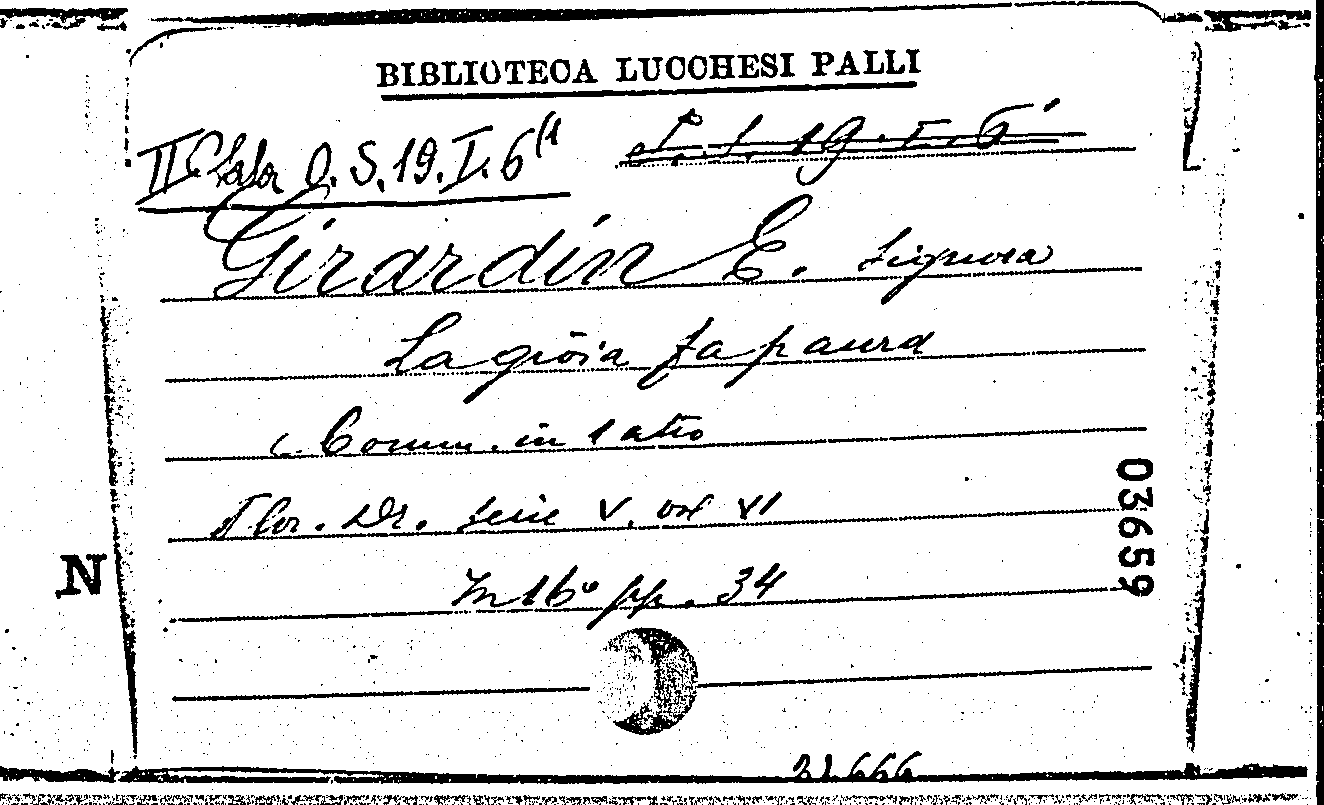 BIBLIOTECA LUCCHESI PALLI
II Sala O. S. 19. I. 6 (1
19. I. 6
Girardin E. Signora
La gioia fa paura
Comm. in 1 atto
Flor. Dr. serie V. vol VI
In 16° pp. 34
03659
N